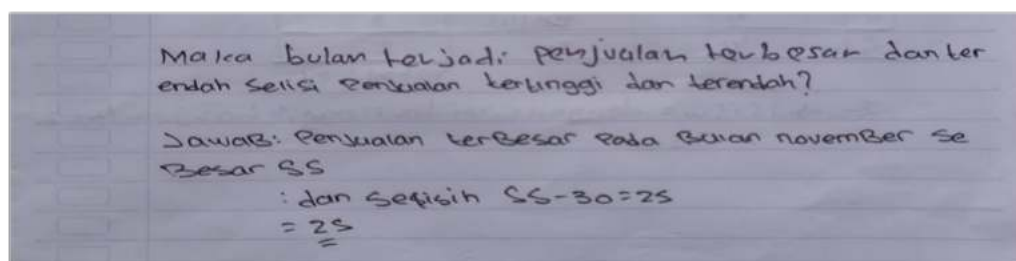 Maka bulan terjadi penjualan terbesar dan ter
endah selisi Penjualan tertinggi dan terendah?
Jawab: Penjualan terBesar Pada Bulan novemBer se
Besar 55
: dan selisih 55-30=25
= 25